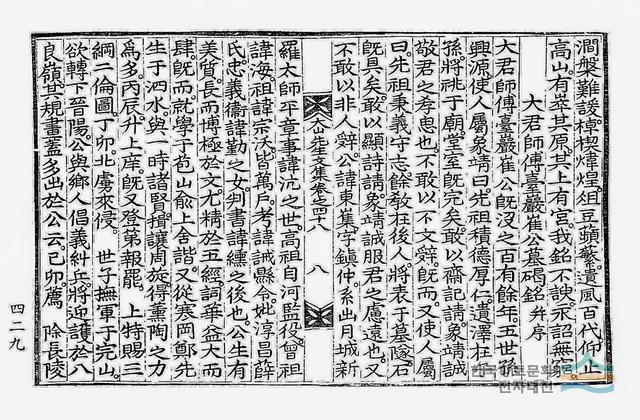 澗盤難諼棹楔煒煌俎豆蘋蘩遺風百代仰止
高山有崒其原其上有宮我銘不諛永詔無窮
大君師傅臺巖崔公墓碣銘幷序
大君師傅臺巖崔公旣沒之百有餘年五世孫
興源使人屬象靖曰先祖積德厚仁遺澤在
孫將祧于廟堂室旣完矣敢以齋記請象靖誠
敬君之孝思也不敢以不文辭旣而又使人屬
曰先祖秉義守志餘敎在後人將表于墓隧石
旣具矣敢以顯詩請象靖誠服君之慮遠也又
不敢以非人辭公諱東㠍字鎭仲系出月城新
文集卷之四十八 八
羅太師平章事諱沆之世高祖自河監役曾祖
諱海祖諱宗沃皆萬戶考諱誡縣令妣淳昌薛
氏忠義衛諱勤之女判書諱纁之後也公生有
美質長而博極於文尤精於五經詞華益大而
肆旣而就學于芭山兪上舍諧又從寒岡鄭先
生于泗水與一時諸賢揖讓周旋得薰陶之力
爲多丙辰升上庠旣又登第報罷 上特賜三
綱二倫圖丁卯北虜來侵 世子撫軍于完山
欲轉下晉陽公與鄕人倡義糾兵將迎護於八
良嶺其規畫蓋多出於公云己卯薦 除長陵
四二九
한국유교문화
전자대전